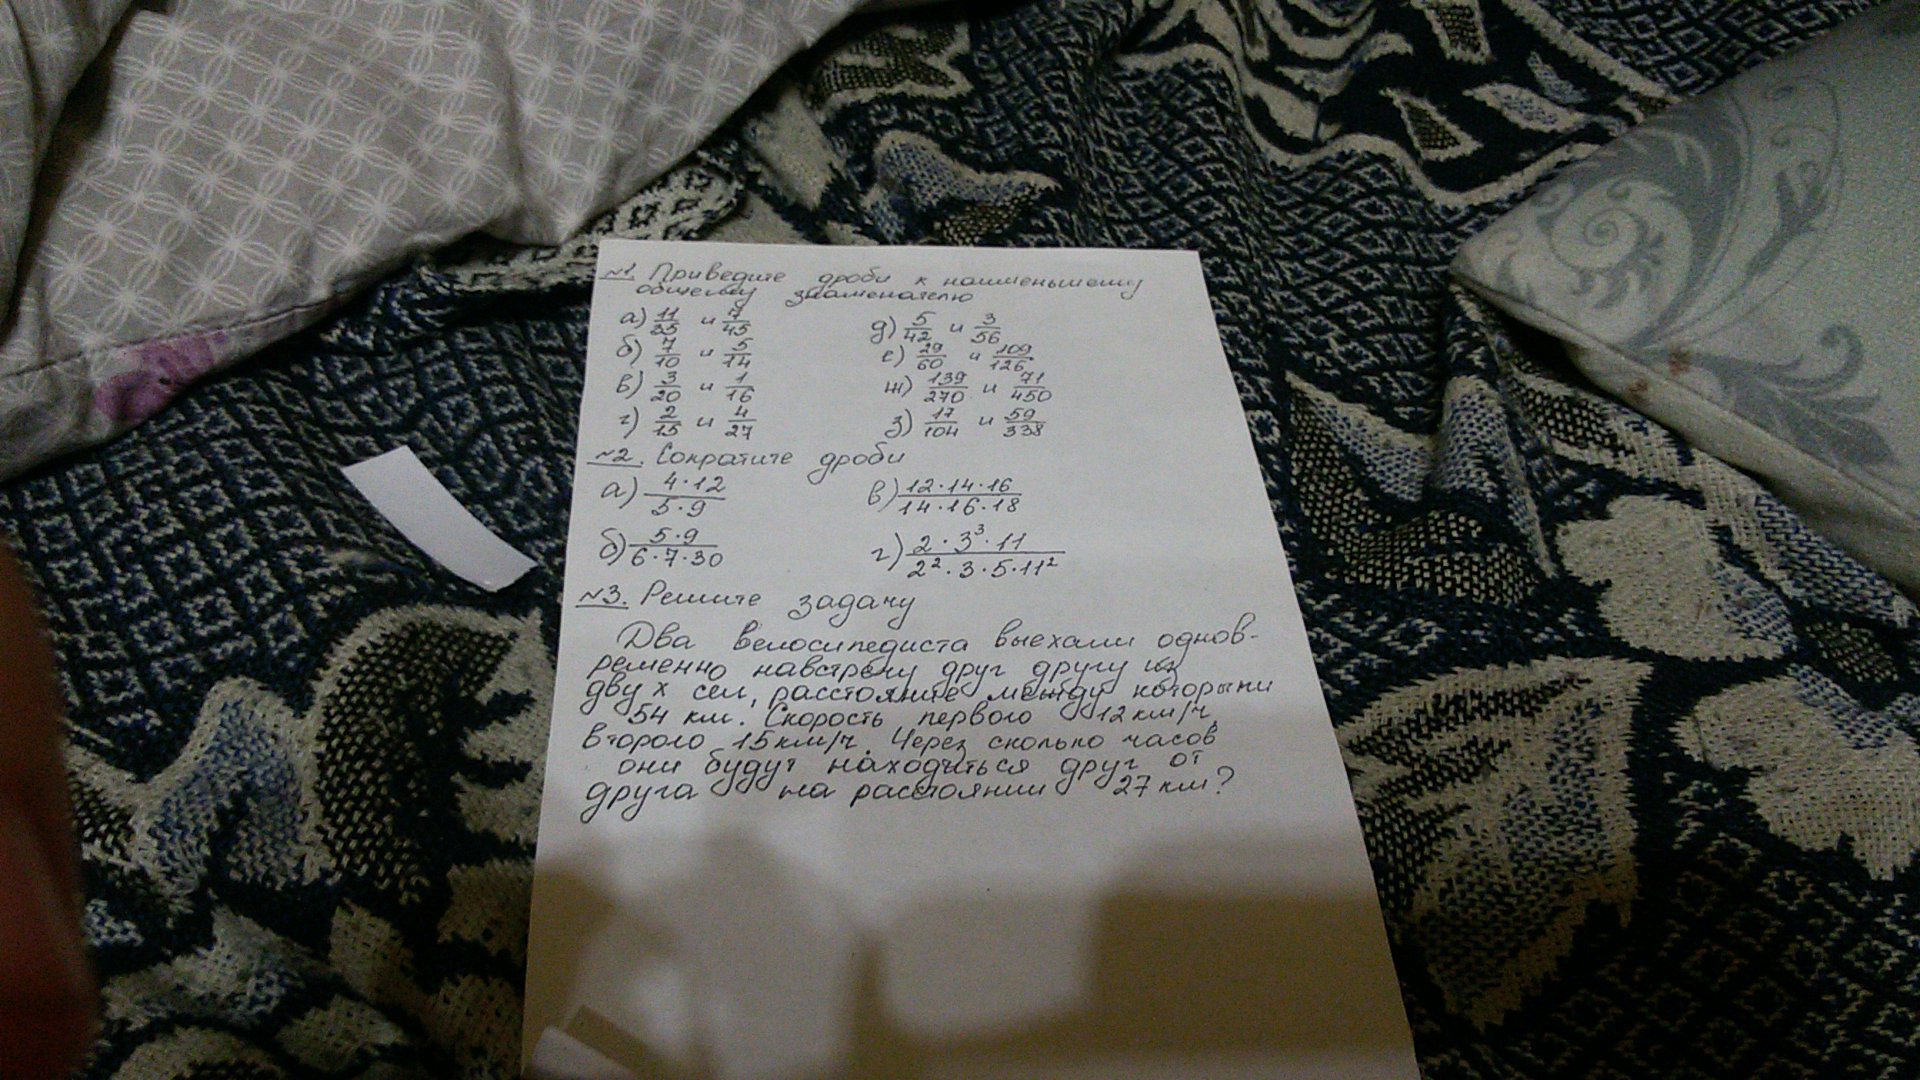 №1. Приведите дроби к наименьшему
общему знаменателю
а) 11/35 и 7/45 д) 5/42 и 3/56
б) 7/10 и 5/14 е) 29/60 и 109/126
в) 3/20 и 1/16 ж) 139/270 и 71/450
г) 2/15 и 4/27 з) 17/104 и 59/338
№2. Сократите дроби
а) 4·12/5·9 в) 12·14·16/14·16·18
б) 5·9/6·7·30 г) 2·3³·11/2²·3·5·11²
№3. Решите задачу
Два велосипедиста выехали однов-
ременно навстречу друг другу из
двух сел, расстояние между которыми
54 км. Скорость первого 12 км/ч,
второго 15 км/ч. Через сколько часов
они будут находиться друг от
друга на расстоянии 27 км?